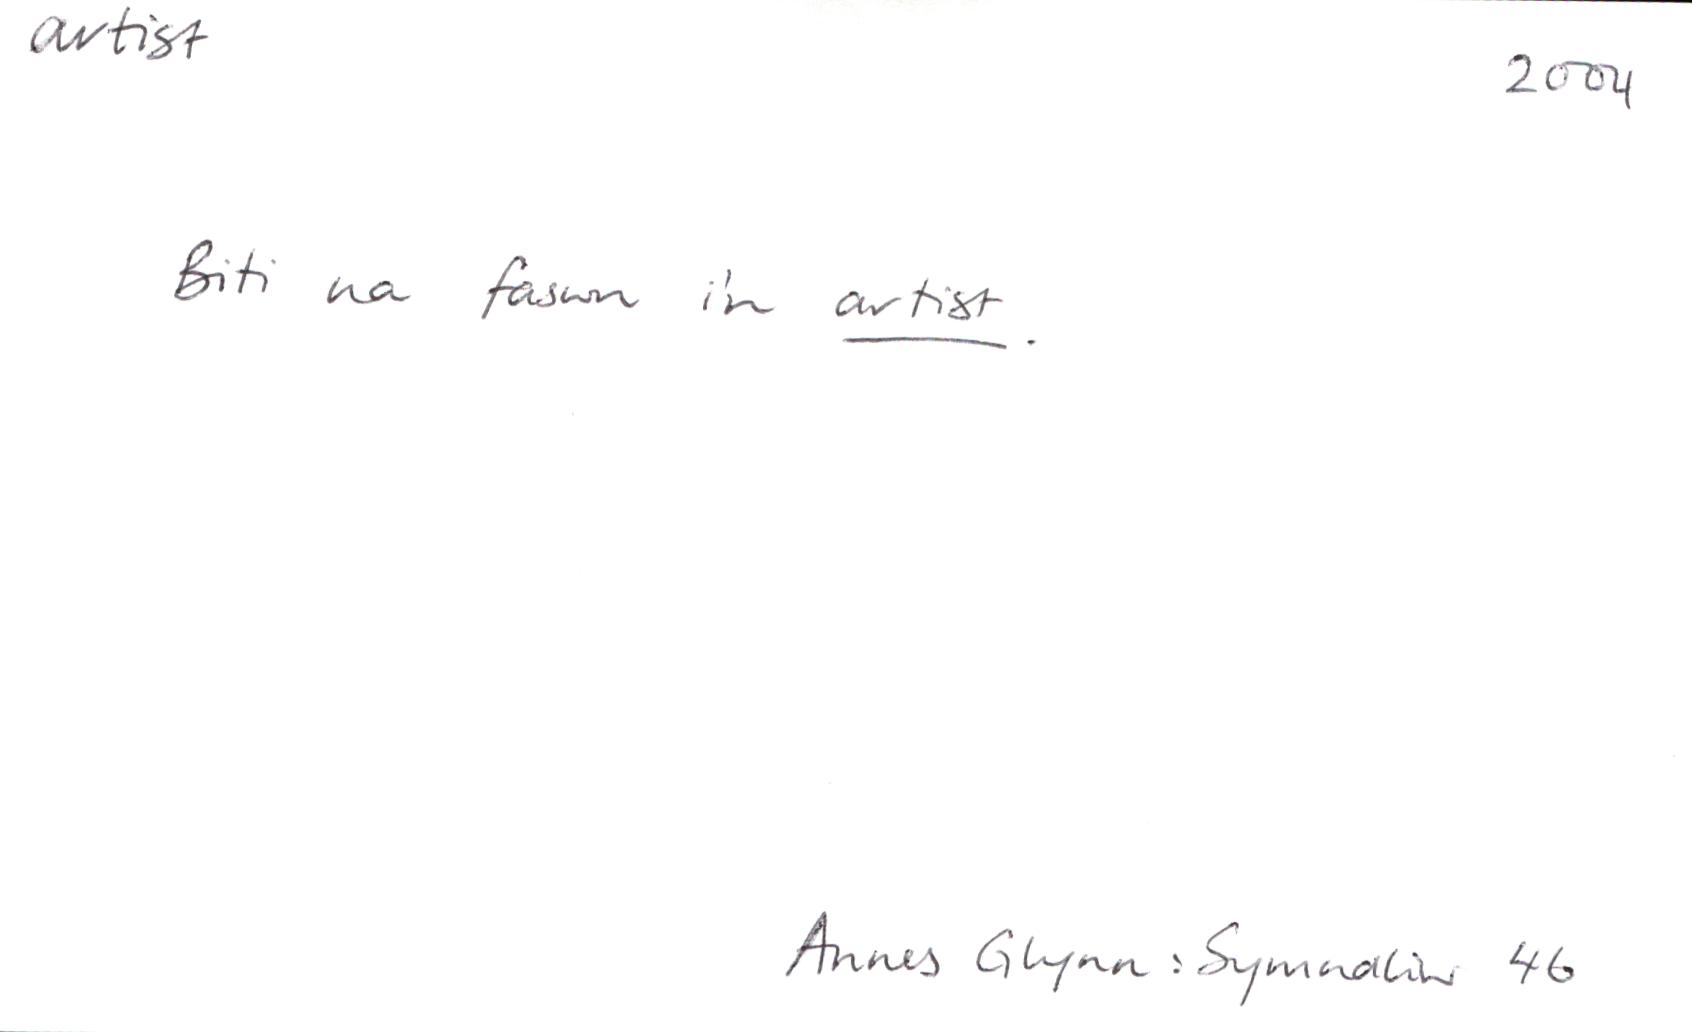 artist
2004
Biti na faswn i'n artist.
Annes Glynn: Symudliw 46